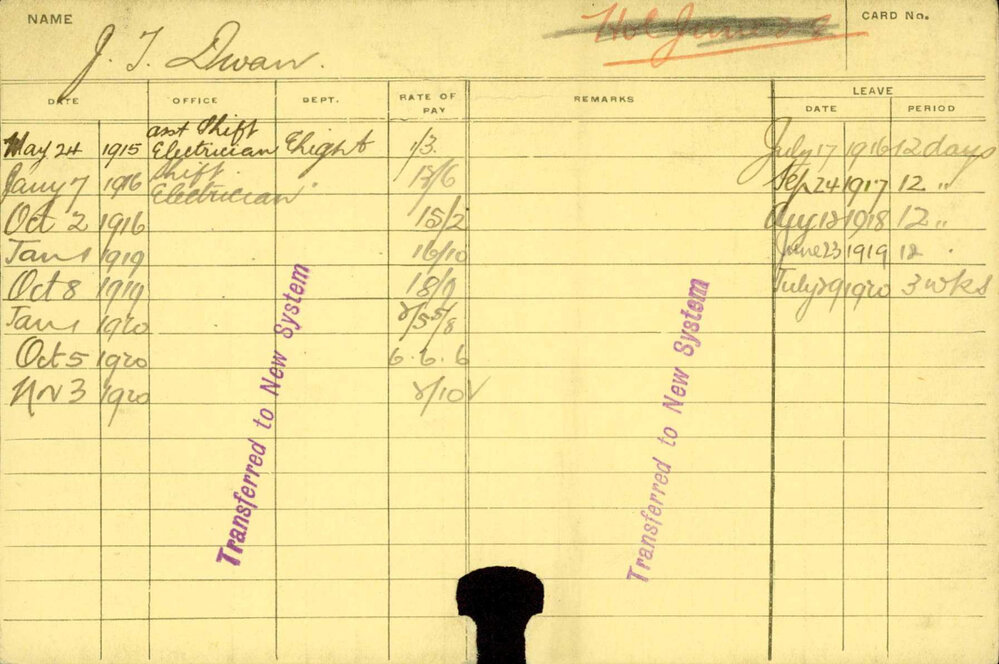 NAME
J. T. Dwan.
Hol June
CARD No.
DATE OFFICE DEPT. RATE OF PAY REMARKS LEAVE
DATE PERIOD
May 24 1915 asst Shift Electrician Elight 1/3. July 17 1916 12 days
Jany 7 1916 Shift Electrician " Sep 24 1917 12 "
Oct 2 1916 15/2 1918 12 "
Jan 1 1919 16/10 June 23 1919 12
Oct 8 1919 18/9 July 29 1920 3 wks
Jan 1 1920
Oct 5 1920 6.6.6
Nov 3 1920
Transferred to New System
Transferred to New System